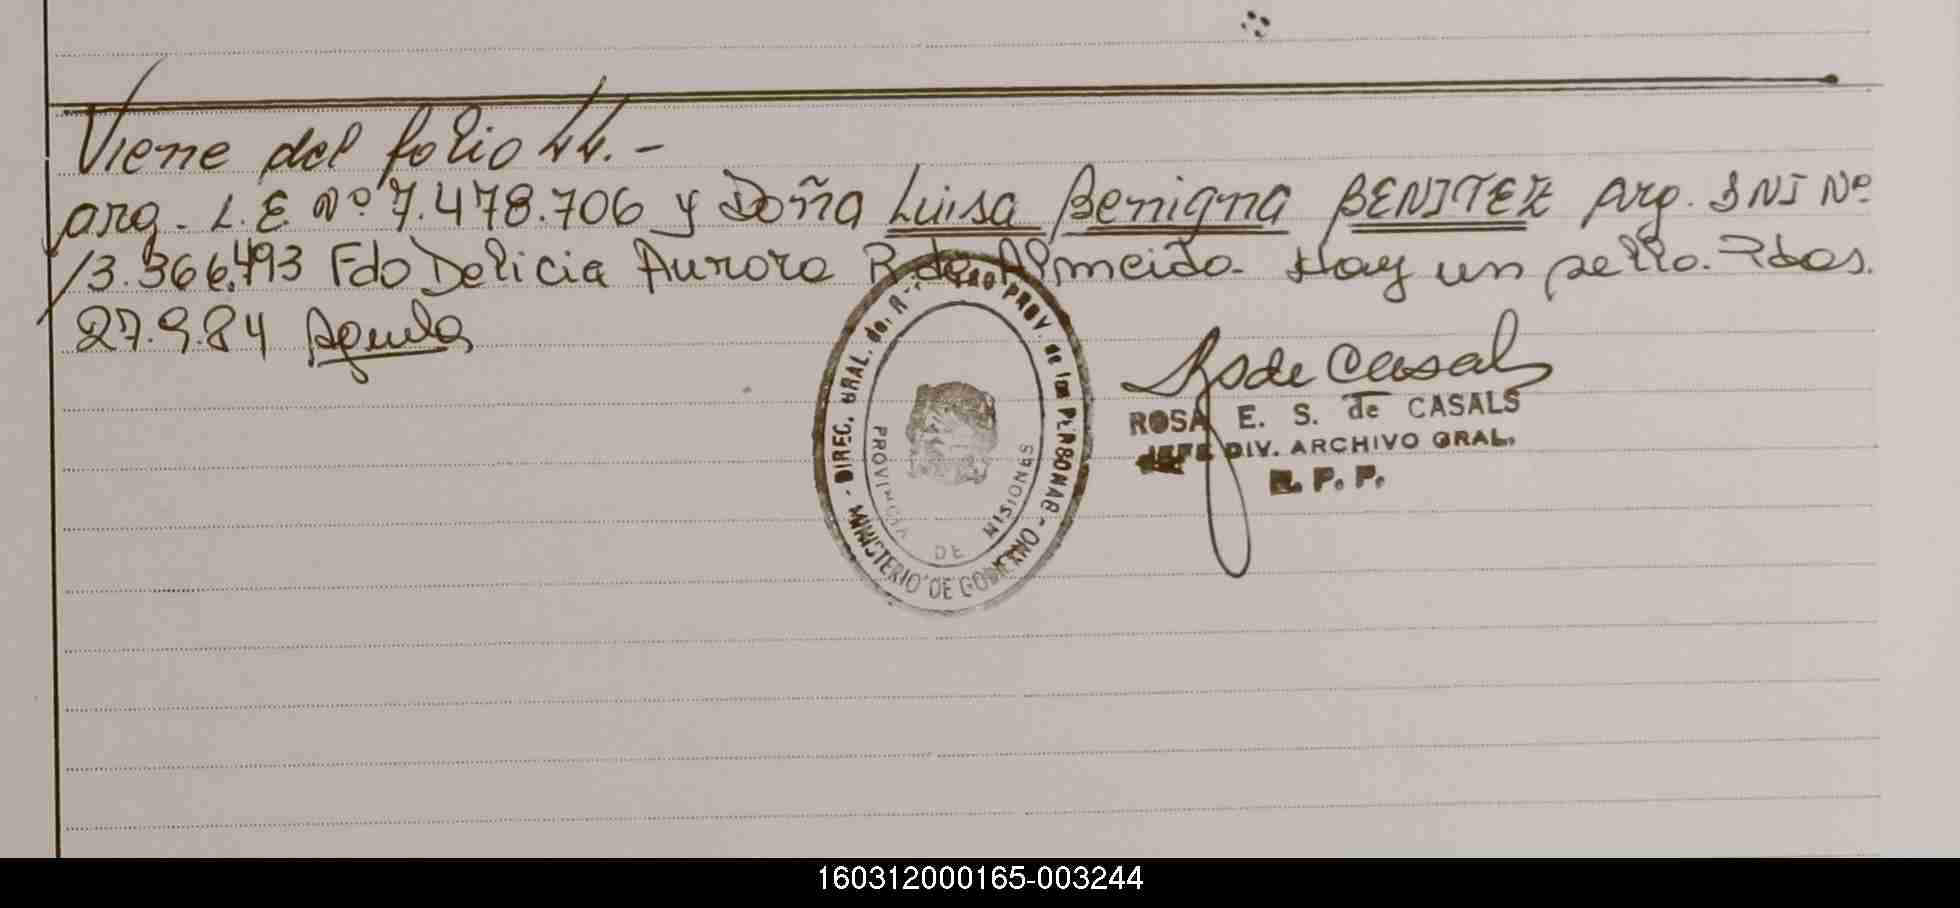 Viene del folio 44.-
arg. L.E Nº 7.478.706 y Doña Luisa Benigna BENITEZ Arg. DNI Nº
13.366.493 Fdo Delicia Aurora R. de Almeida. Hay un sello. Pdas.
27.9.84
DIREC. GRAL. del PROV. de las PERSONAS - MINISTERIO DE GOBIERNO -
PROVINCIA DE MISIONES
R. S. de Casals
ROSA E. S. de CASALS
JEFE DIV. ARCHIVO GRAL.
R. P. P.
160312000165-003244